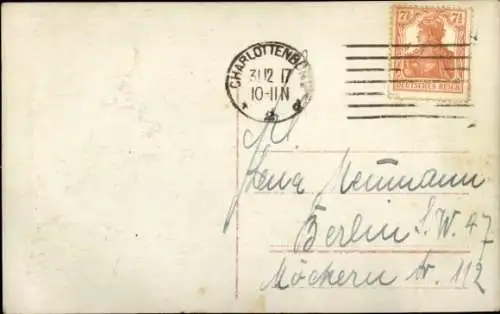 7½ 7½
DEUTSCHES REICH
CHARLOTTENBURG
31.12 17
10-11N
Neumann
Berlin S.W. 47
Möckern Str. 112